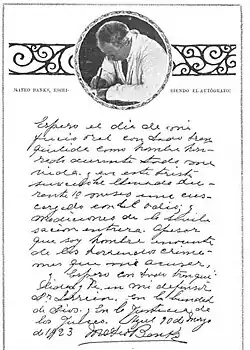 MATEO BANKS, ESCRI-
BIENDO EL AUTÓGRAFO:
Espero el día de mi
juicio oral con toda tran
quilidad como hombre hon
rrado durante toda mi
vida, y en este trist
suceso he llamado du
rante 12 meses una
con el odio, y
maldiciones de la
entera. Apesar
que soy hombre inocente
de los horrendos crime
nes que me acusan,
y espero con toda tranqui
lidad, y Fe en mi defensor
Dr Larrain, en la bondad
de Dios, y En la Justicia de
los Jueces. Azul, 20 de Mayo
de 1923 Mateo Banks